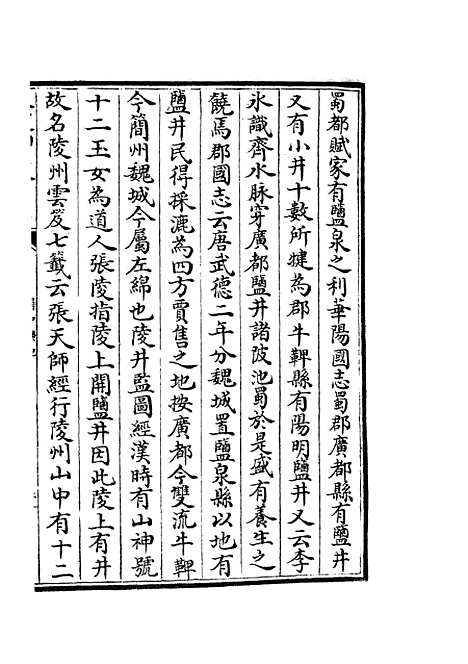 蜀都賦家有鹽泉之利華陽國志蜀郡廣都縣有鹽井
又有小井十數所犍為郡牛鞞縣有陽明鹽井又云李
氷識齊水脉穿廣都鹽井諸陂池蜀於是盛有養生之
饒馬郡國志云唐武德二年分魏城置鹽泉縣以地有
鹽井民得採漉為四方賈售之地按廣都今雙流牛鞞
今簡州魏城今屬左綿也陵井監圖經漢時有山神號
十二玉女為道人張陵指陵上開鹽井因此陵上有井
故名陵州雲笈七籤云張天師經行陵州山中有十二